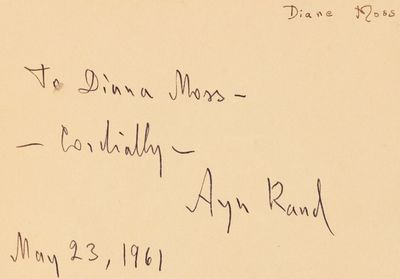 Diane Moss
To Dianna Moss –
– Cordially –
Ayn Rand
May 23, 1961